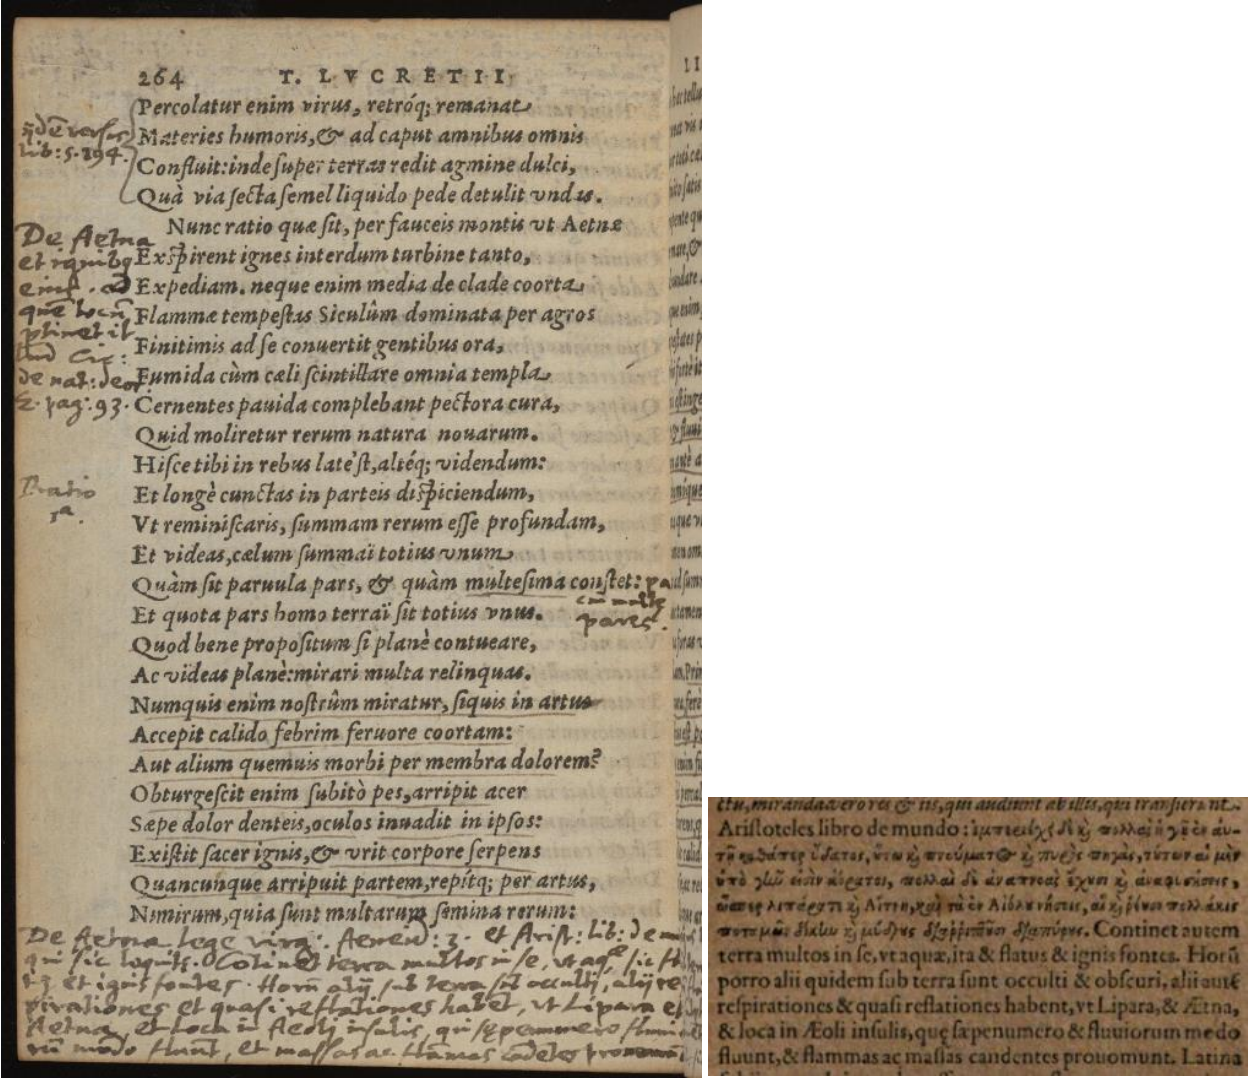 264 T. LVCRETII
Percolatur enim virus, retróq; remanat
Materies humoris, & ad caput amnibus omnis
Confluit: inde super terras redit agmine dulci,
Quà via secta semel liquido pede detulit vndas.
Nunc ratio quæ sit, per fauceis montis vt Aetnæ
Exspirent ignes interdum turbine tanto,
Expediam. neque enim media de clade coorta
Flammæ tempestas Siculûm dominata per agros
Finitimis ad se conuertit gentibus ora,
Fumida cùm cæli scintillare omnia templa
Cernentes pauida complebant pectora cura,
Quid moliretur rerum natura nouarum.
Hisce tibi in rebus late'st, altéq; videndum:
Et longè cunctas in parteis dispiciendum,
Vt reminiscaris, summam rerum esse profundam,
Et videas, cælum summaï totius vnum
Quàm sit paruula pars, & quàm multesima constet:
Et quota pars homo terraï sit totius vnus.
Quod bene propositum si planè contueare,
Ac videas planè: mirari multa relinquas.
Numquis enim nostrûm miratur, siquis in artus
Accepit calido febrim feruore coortam:
Aut alium quemuis morbi per membra dolorem?
Obturgescit enim subitò pes, arripit acer
Sæpe dolor denteis, oculos inuadit in ipsos:
Existit sacer ignis, & vrit corpore serpens
Quancunque arripuit partem, repítq; per artus,
Nimirum, quia sunt multarum semina rerum:
lib: 5. 294.
De Aetna
et ignibq
eius. ad
quē locū
ptinet il
lud Cic:
de nat: deor
2. pag: 93.
Ratio
1a.
pares.
De Aetna lege virg: Aeneid: 3. et Arist: lib: de
qui sic loquit. Cōtinet terra multos in se, vt aq
et ignis fontes. Horū alij sub terra sūt occulti, alij re
spirationes et quasi reflationes habēt, vt Lipara et
Aetna, et loca in Aeoli insulis, qui sępenumero flumi
rū modo fluūt, et massas ac flāmas cādētes
ctu, miranda
Aristoteles libro de mundo:
Continet autem
terra multos in se, vt aquæ, ita & flatus & ignis fontes. Horū
porro alii quidem sub terra sunt occulti & obscuri, alii autē
respirationes & quasi reflationes habent, vt Lipara, & Ætna,
& loca in Æoli insulis, quę sæpenumero & fluuiorum modo
fluunt, & flammas ac massas candentes prouomunt. Latina